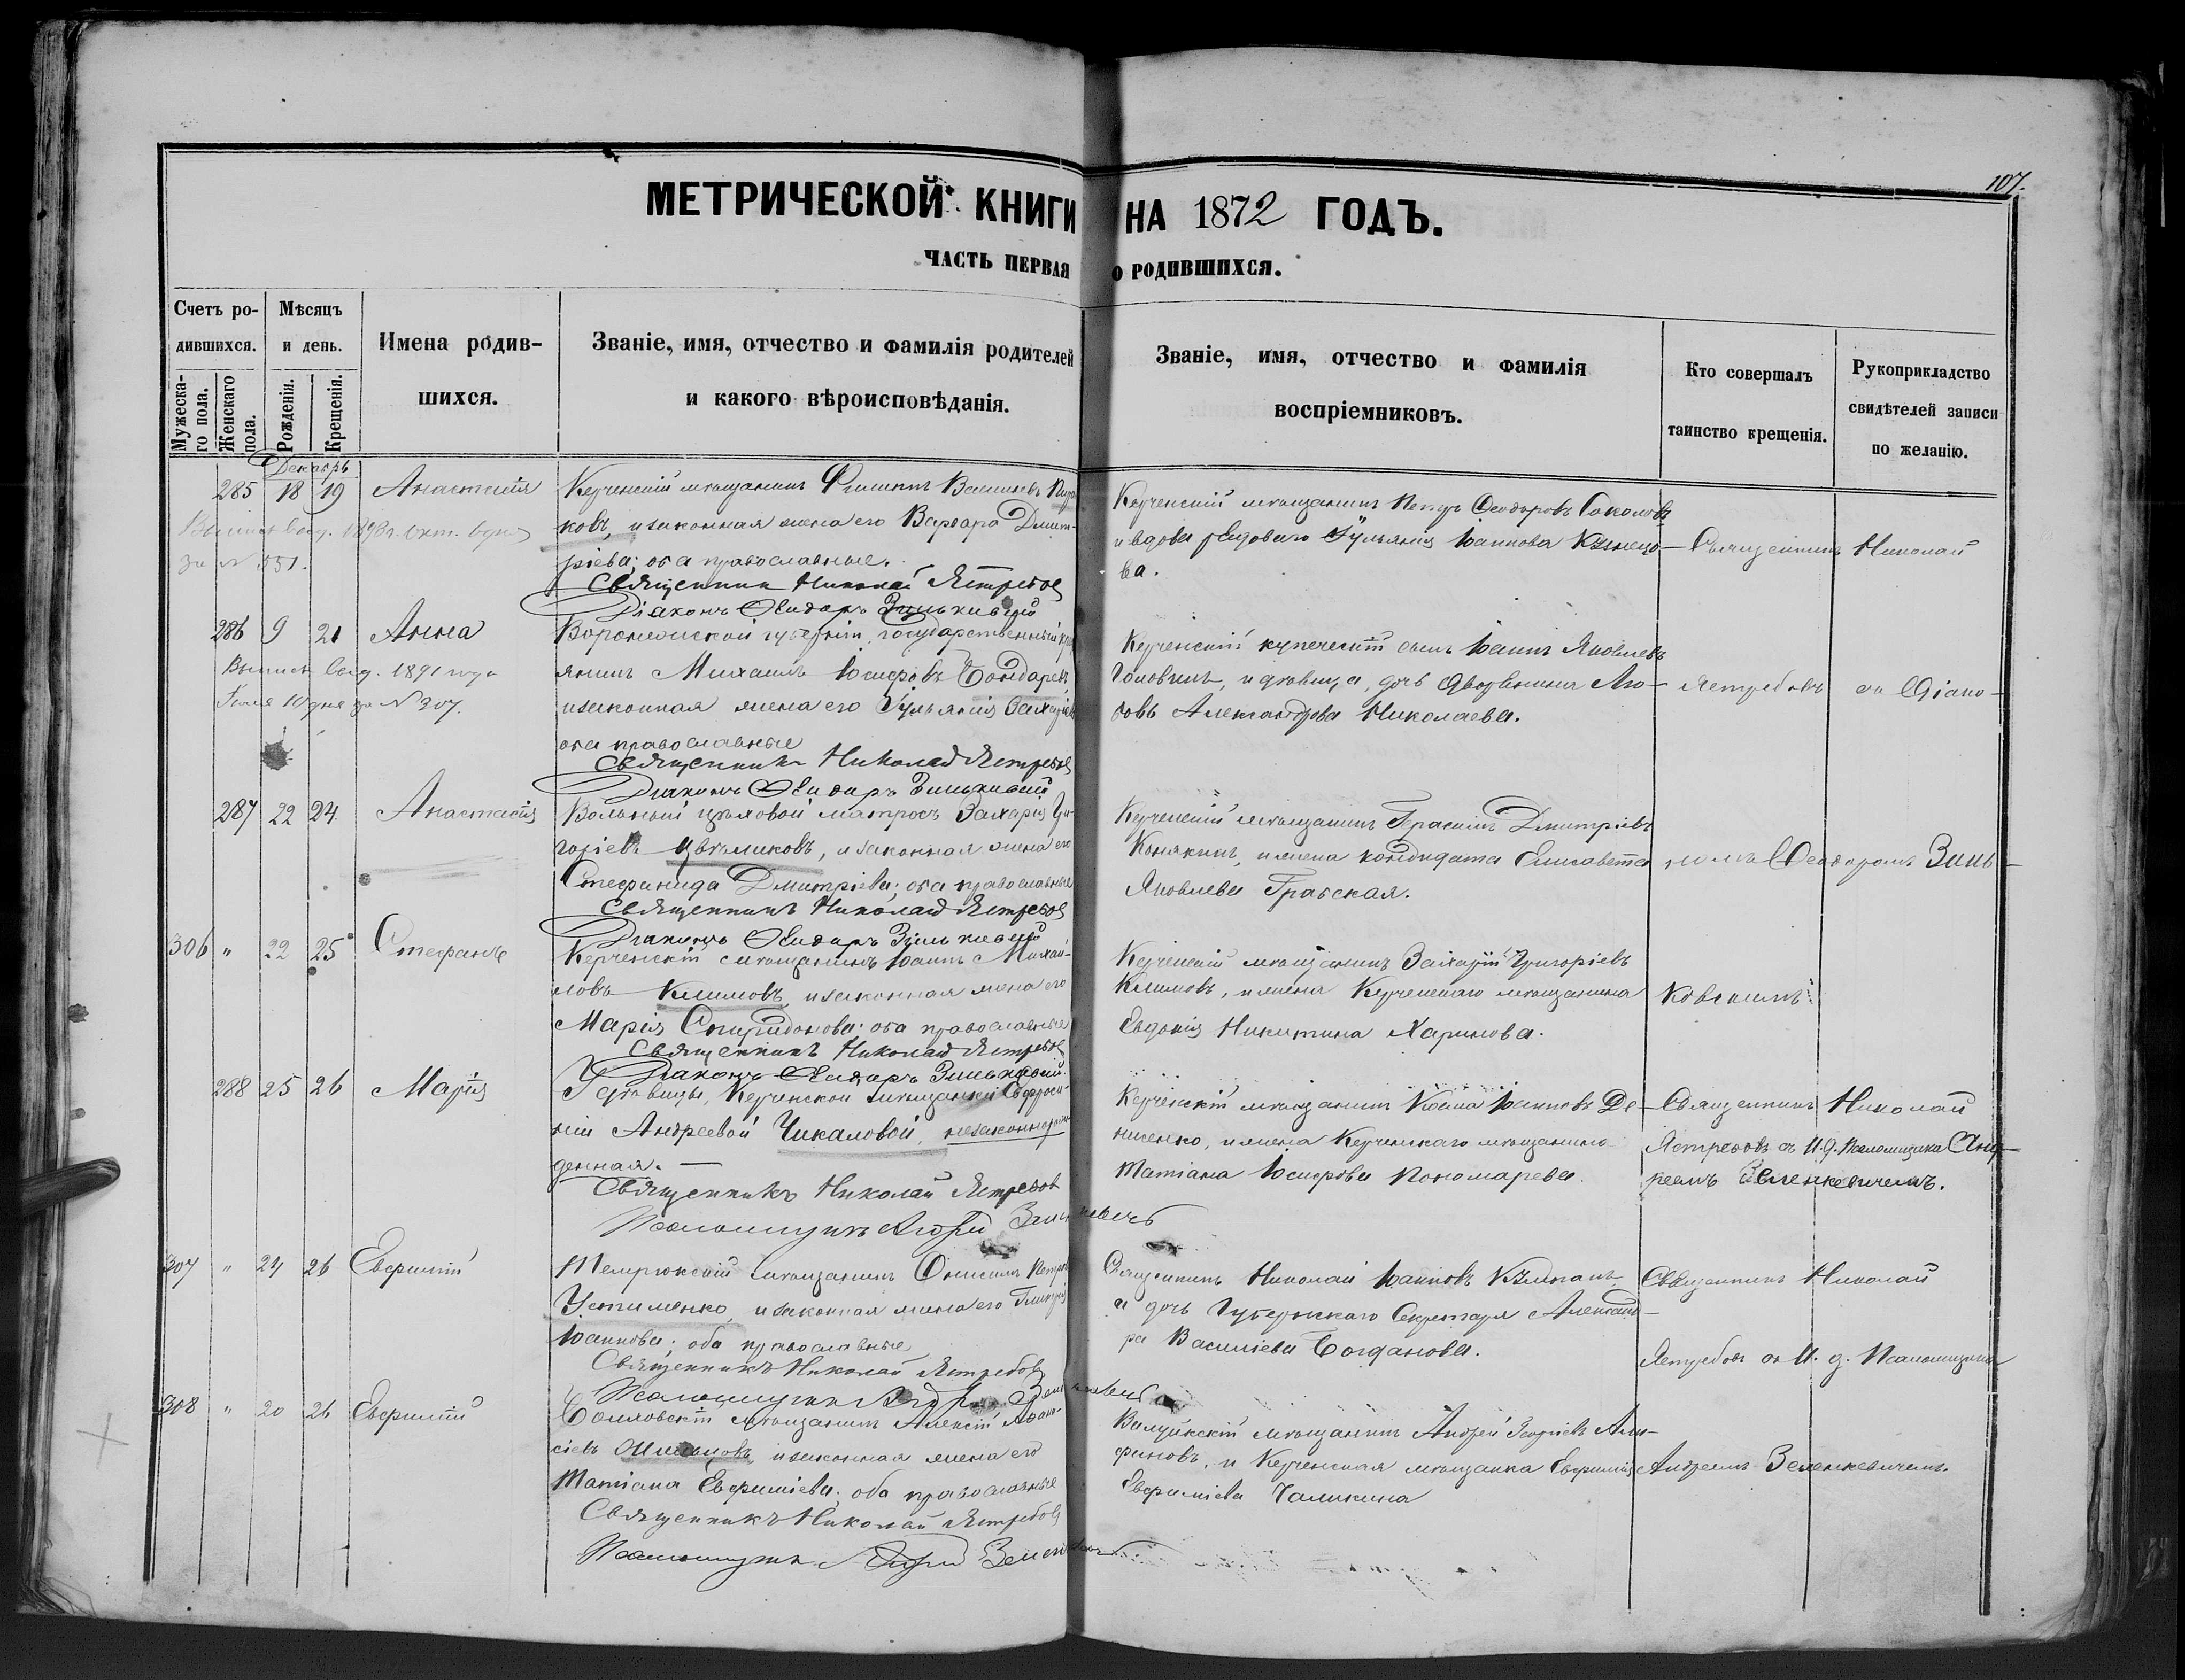 107.
МЕТРИЧЕСКОЙ КНИГИ НА 1872 ГОДЪ.
ЧАСТЬ ПЕРВАЯ О РОДИВШИХСЯ.
Счетъ ро-
дившихся.
Мужеска-
го пола.
Женскаго
пола.
Мѣсяцъ
и день.
Рожденія.
Крещенія.
Имена родив-
шихся.
Званіе, имя, отчество и фамилія родителей
и какого вѣроисповѣданія.
Званіе, имя, отчество и фамилія
воспріемниковъ.
Кто совершалъ
таинство крещенія.
Рукоприкладство
свидѣтелей записи
по желанію.
Декабрь
285 18 19 Анастасія
за № 551.
Керченскій мѣщанинъ Филиппъ
ковъ, и законная жена его Варвара Дмит-
ріева; оба православные.
Священникъ Николай Ястребов
Діаконъ Ѳеодоръ Зинькивскій
Керченскій мѣщанинъ Петръ Ѳеодоровъ Соколовъ
и вдова рядоваго Іуліанія Іоаннова Кузнецо-
ва.
Священникъ Николай
286 9 21 Анна
Выпись выд. 1891 года
Іюля 10 дня за № 307.
Воронежской губерніи, государственный
янинъ Михаилъ Іосифовъ Бондарев
и законная жена его Іуліанія
оба православные
Священникъ Николай Ястребов
Діаконъ Ѳеодоръ Зинькивскій
Керченскій купеческій сынъ Іоаннъ Яковлевъ
Головинъ, и дѣвица, дочь дворянина Лю-
бовь Александрова Николаева.
Ястребовъ съ Діако-
287 22 24 Анастасія
Вольный цеховой матросъ Захарія Гри-
горіевъ и законная жена его
Стефанида Дмитріева; оба православные
Священникъ Николай Ястребов
Діаконъ Ѳеодоръ Зинькивскій
Керченскій мѣщанинъ Герасимъ Дмитріевъ
Конякинъ, и жена кондидата Елисавета
Яковлева Грабская.
номъ Ѳеодоромъ Зинь-
306 " 22 25 Стефанъ
Керченскій мѣщанинъ Іоаннъ Михай-
ловъ Климовъ, и законная жена его
Марія Спиридонова; оба православные
Священникъ Николай Ястребов
Діаконъ Ѳеодоръ Зинькивскій
Керченскій мѣщанинъ Захарій Григоріевъ
Климовъ, и жена Керченскаго мѣщанина
Евдокія Никитина Харинова.
288 25 26 Марія
У дѣвицы, Керченской мѣщанки Евфроси-
ніи Андреевой Чикаловой, незаконнорож-
денная.
Священникъ Николай Ястребов
Псаломщикъ Андрей
Керченскій мѣщанинъ Косма Іоанновъ Де-
нисенко, и жена Керченскаго мѣщанина
Татіана Іосифова Пономарева.
Священникъ Николай
Ястребовъ съ И. д. Псаломщика Анд-
реемъ Зеленкевичемъ.
307 " 24 26 Евфимій
Темрюкскій мѣщанинъ Онисимъ Петров
Устименко, и законная жена его
Іоаннова; оба православные
Священникъ Николай Ястребовъ
Псаломщикъ Андрей
Священникъ Николай Іоанновъ
и дочь Губернскаго Секретаря Александ-
ра Василіева Богданова.
Священникъ Николай
Ястребовъ съ И. д. Псаломщика
308 " 20 26 Евфимій
мѣщанинъ Алексій Афана-
сіевъ и законная жена его
Татіана Евфиміева; оба православные
Священникъ Николай Ястребовъ
Псаломщикъ Андрей
Валуйкскій мѣщанинъ Андрей Георгіевъ
и Керченская мѣщанка Евфимія
Евфиміева Галикина
Андреемъ Зеленкевичемъ.